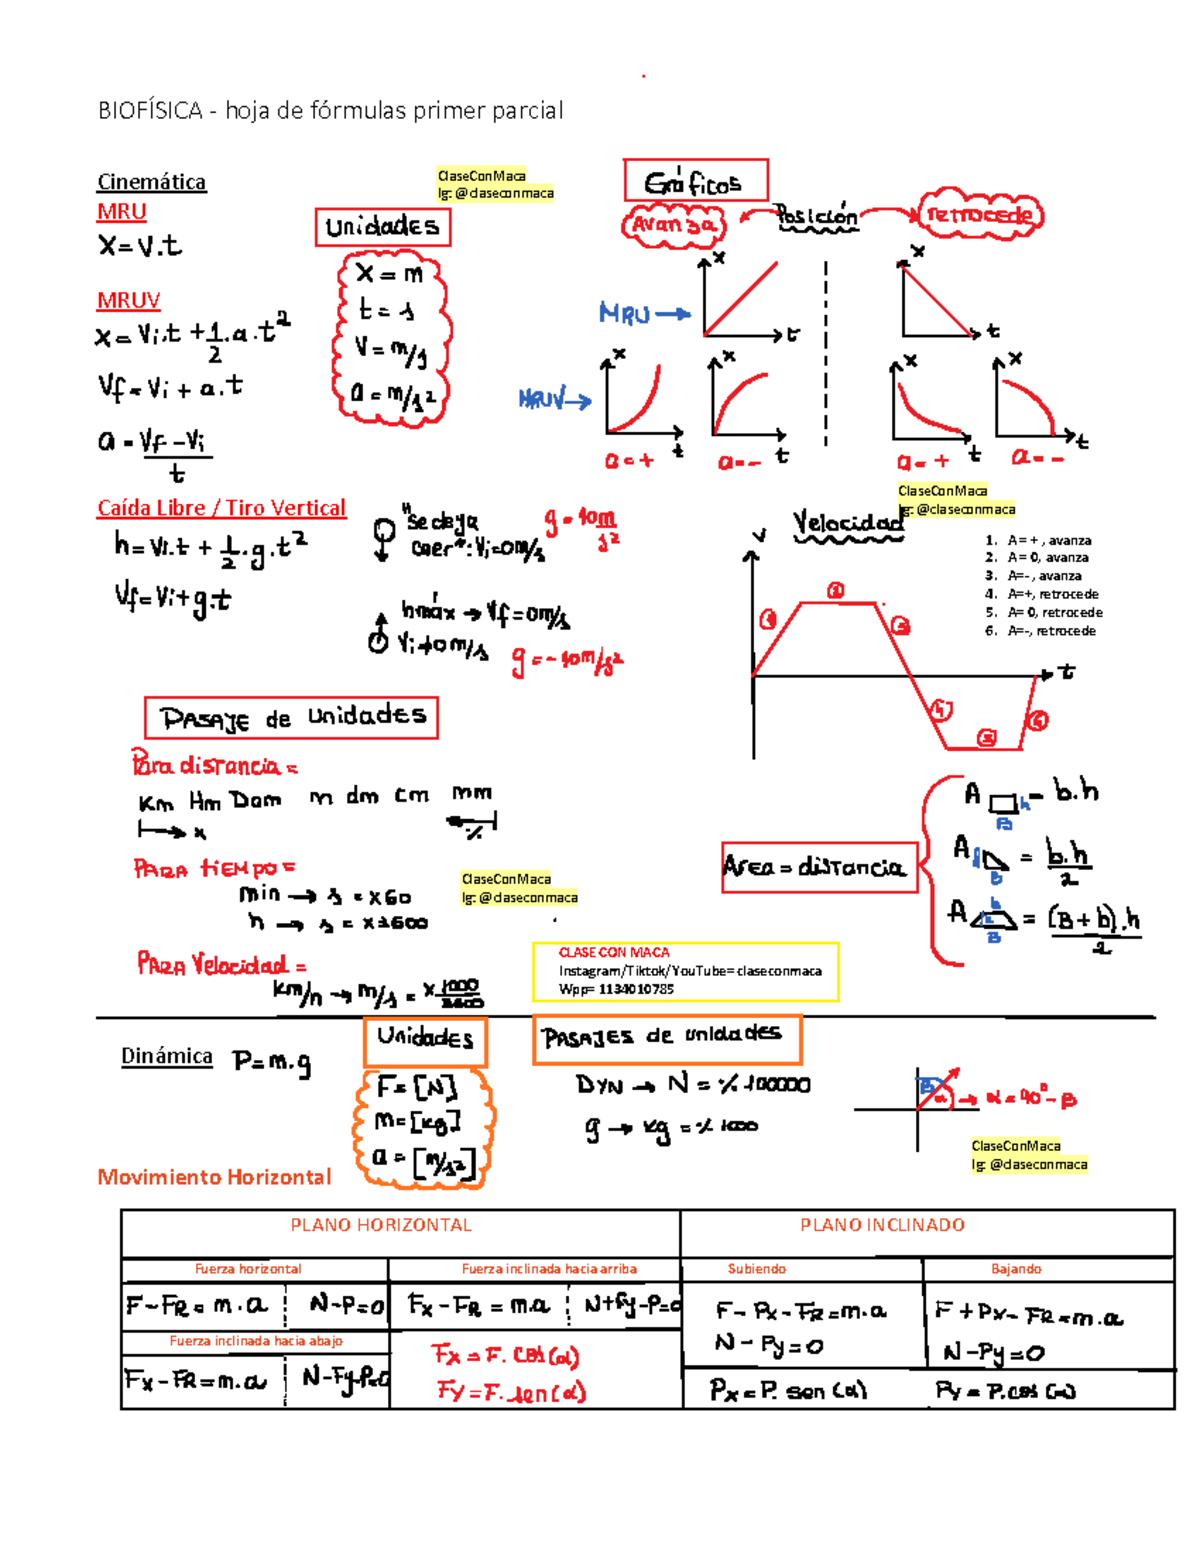 BIOFÍSICA - hoja de fórmulas primer parcial
Cinemática
MRU
X = V.t
MRUV
x = Vi.t + 1/2 . a . t²
Vf = Vi + a.t
a = Vf - Vi / t
ClaseConMaca
Ig: @claseconmaca
Unidades
X = m
t = s
V = m/s
a = m/s²
Gráficos
Avanza
Posición
retrocede
MRU
x
t
x
t
MRUV
x
t
a = +
x
t
a = -
x
t
a = +
x
t
a = -
Caída Libre / Tiro Vertical
h = Vi.t + 1/2 . g . t²
Vf = Vi + g.t
"se deja
caer": Vi = 0m/s
g = 10m/s²
hmáx → Vf = 0m/s
Vi ≠ 0m/s
g = -10m/s²
ClaseConMaca
Ig: @claseconmaca
Velocidad
v
t
1
2
3
4
5
6
1. A= + , avanza
2. A= 0, avanza
3. A=-, avanza
4. A=+, retrocede
5. A= 0, retrocede
6. A=-, retrocede
PASAJE de Unidades
Para distancia =
Km Hm Dam m dm cm mm
x
%
PARA tiEMPO =
min → s = x60
h → s = x3600
PARA Velocidad =
Km/h → m/s = x 1000/3600
ClaseConMaca
Ig: @claseconmaca
Area = distancia
A h B = b.h
A B = b.h / 2
A b h B = (B + b).h / 2
CLASE CON MACA
Instagram/Tiktok/YouTube= claseconmaca
Wpp= 1134010785
Dinámica P = m.g
Unidades
F = [N]
m = [kg]
a = [m/s²]
PASAJES de unidades
DYN → N = % 100000
g → kg = % 1000
B
α → α = 90° - B
ClaseConMaca
Ig: @claseconmaca
Movimiento Horizontal
PLANO HORIZONTAL
PLANO INCLINADO
Fuerza horizontal
Fuerza inclinada hacia arriba
Subiendo
Bajando
F - FR = m.a
N - P = 0
Fx - FR = m.a
N + Fy - P = 0
F - Px - FR = m.a
N - Py = 0
F + Px - FR = m.a
N - Py = 0
Fuerza inclinada hacia abajo
Fx - FR = m.a
N - Fy - P = 0
Fx = F. cos (α)
Fy = F. sen (α)
Px = P. sen (α)
Py = P. cos (α)